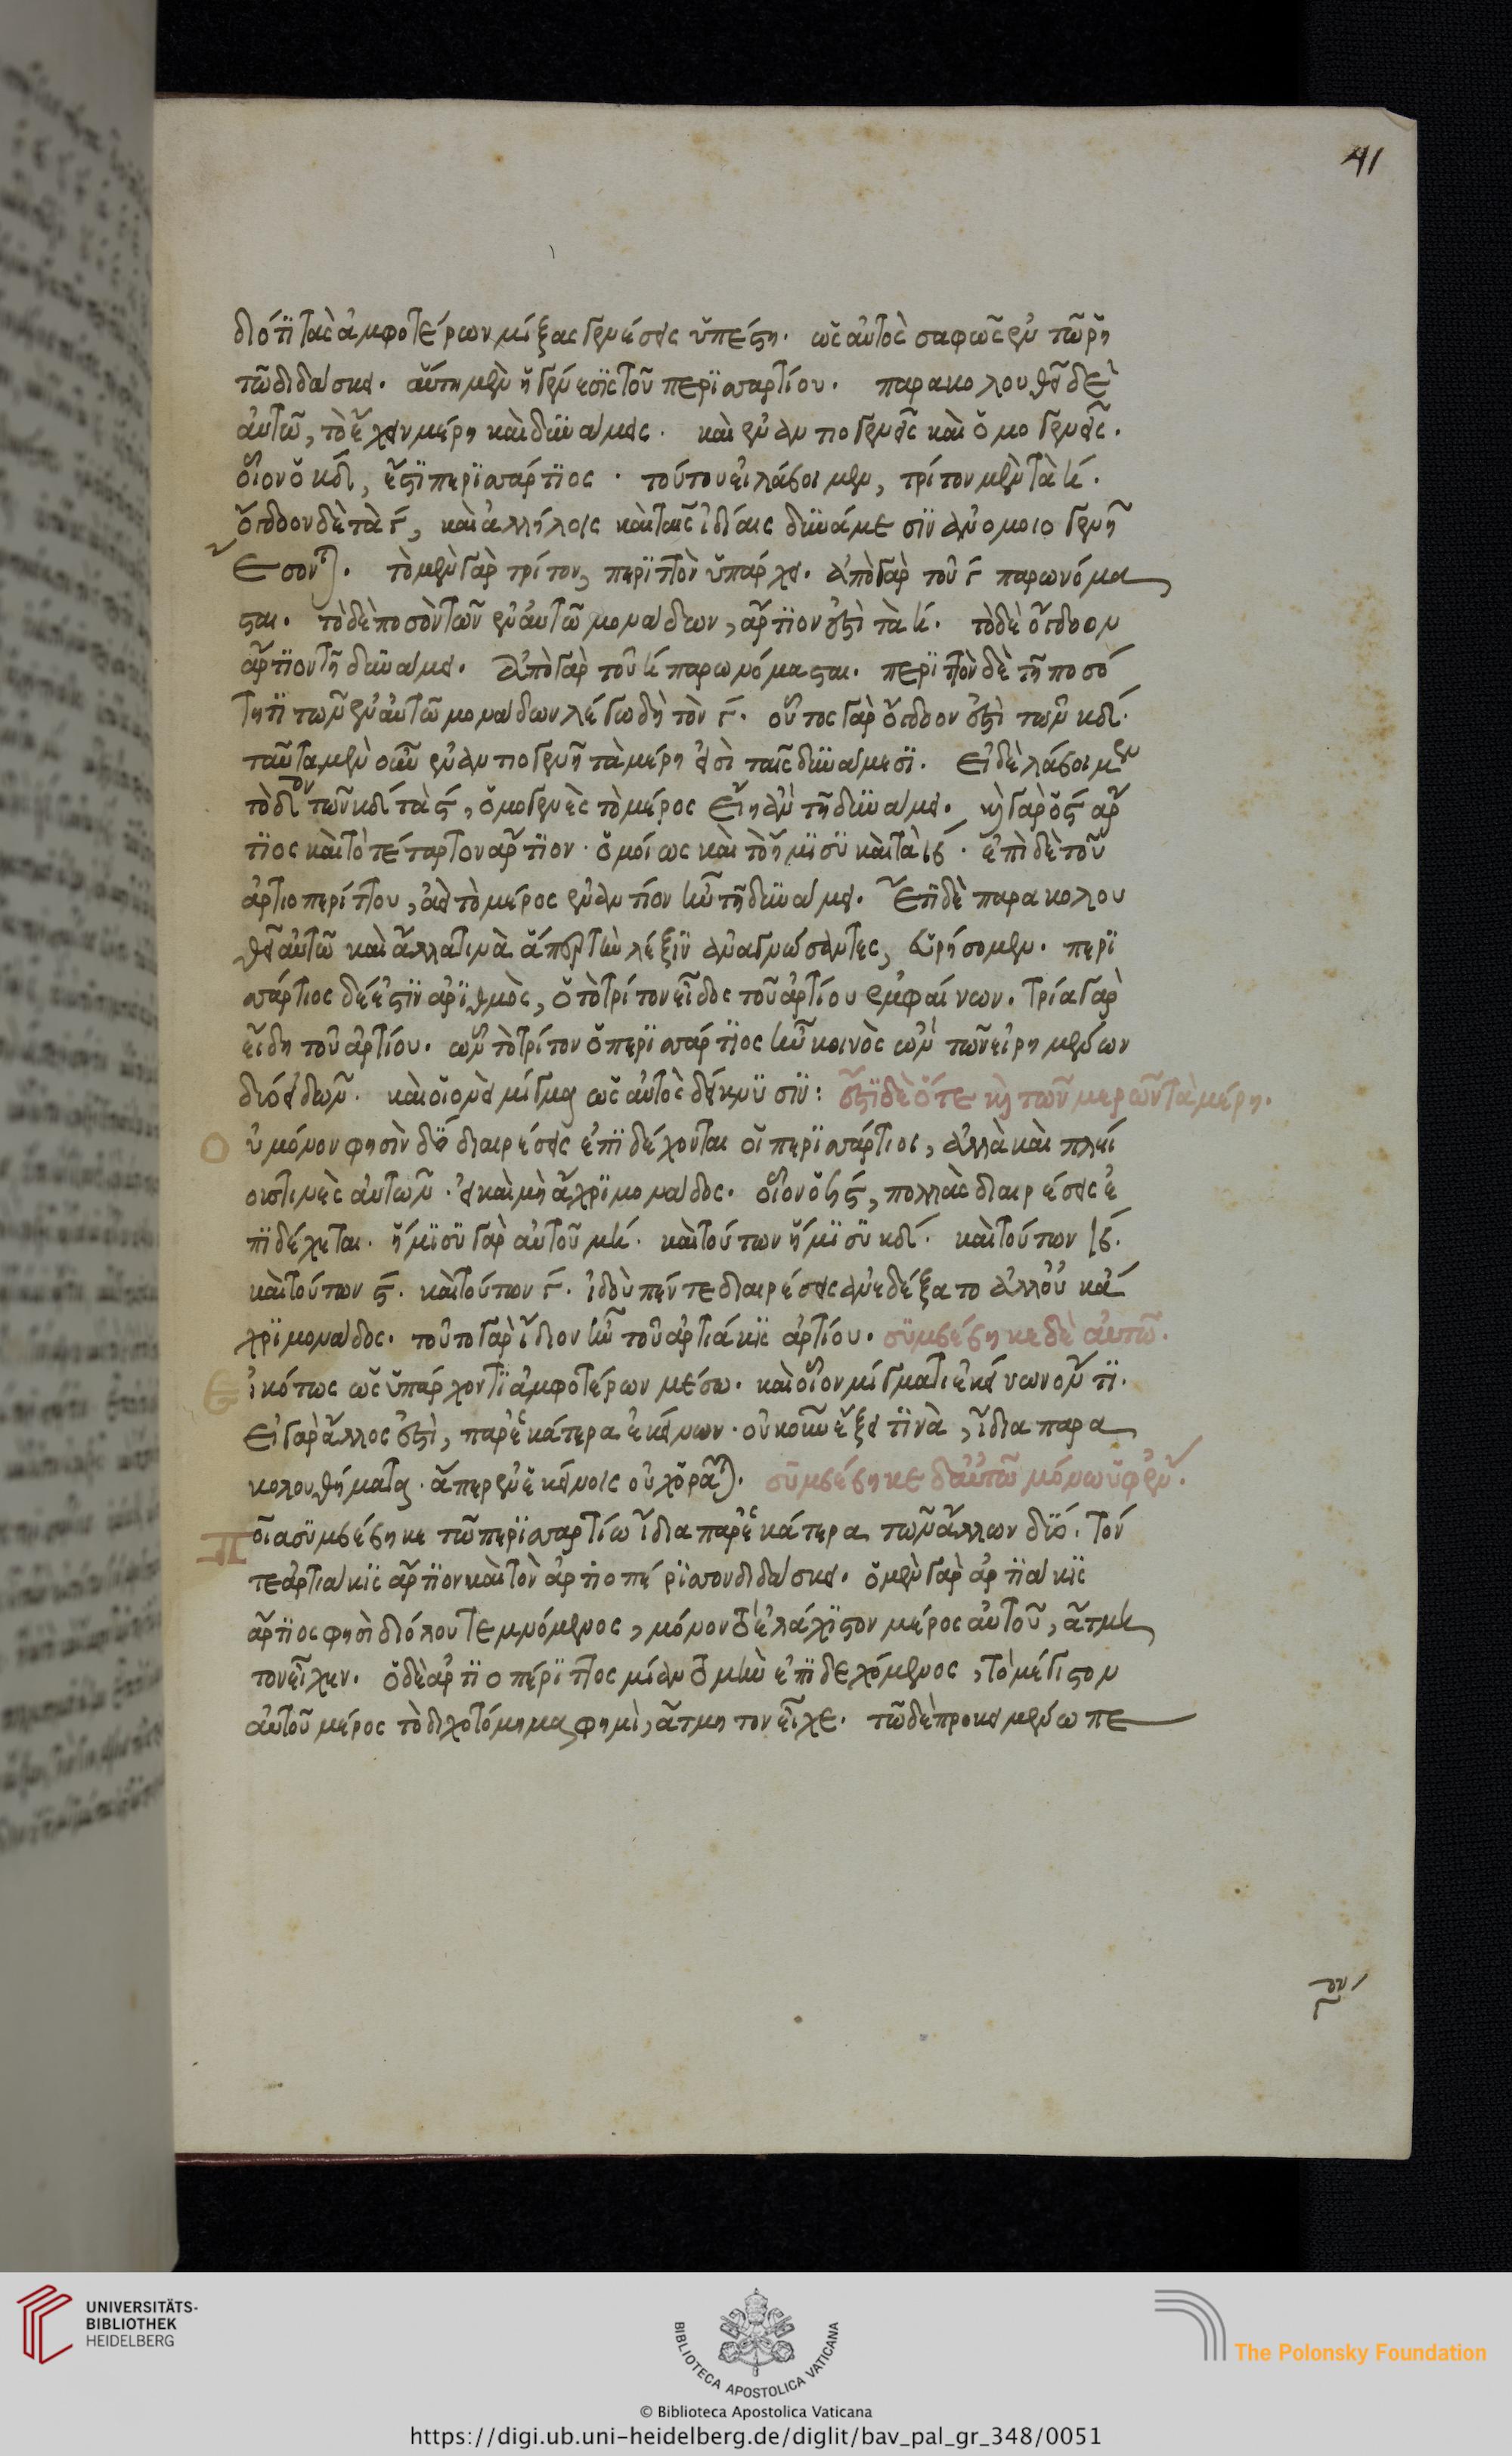 41
διότι τὰς ἀμφοτέρων μίξας γενέσεις ὑπέστη. ὡς αὐτὸς σαφῶς ἐν τῷ ῥητῷ
τῶ διδάσκει. αὕτη μὲν ἡ γένεσις τοῦ περισσαρτίου. παρακολουθεῖ δὲ
αὐτῶ, τὸ ἔχειν μέρη καὶ δυνάμεις. καὶ ἐναντιογενεῖς καὶ ὁμογενεῖς.
οἷον ὁ κδ, ἔστι περισσάρτιος. τούτου εἰ λάβοιμεν, τρίτον μὲν τὰ η.
ὄγδοον δὲ τὰ γ, καὶ ἀλλήλοις καὶ ταῖς ἰδίαις δυνάμεσιν ἀνομοιογενῆ
ἔσονται. τὸ μὲν γὰρ τρίτον, περιττὸν ὑπάρχει. ἀπὸ γὰρ τοῦ γ παρωνόμα
σται. τὸ δὲ ποσὸν τῶν ἐν αὐτῶ μονάδων, ἄρτιον ἐστὶ τὰ η. τὸ δὲ ὄγδοον
ἄρτιον τῇ δυνάμει. ἀπὸ γὰρ τοῦ η παρωνόμασται. περιττὸν δὲ τῇ ποσό
τητι τῶν ἐν αὐτῶ μονάδων λέγω δὴ τὸν γ. οὗτος γὰρ ὄγδοον ἐστὶ τῶν κδ.
ταῦτα μὲν οὖν ἐναντιογενῆ τὰ μέρη εἰσὶ ταῖς δυνάμεσι. εἰ δὲ λάβοιμεν
τὸ δον τῶν κδ τὰ ϛ, ὁμογενὲς τὸ μέρος εἴη ἂν τῇ δυνάμει. καὶ γὰρ ὁ ϛ ἄρ
τιος καὶ τὸ τέταρτον ἄρτιον. ὁμοίως καὶ τὸ ἥμισυ καὶ τὰ ιβ. ἐπὶ δὲ τοῦ
ἀρτιοπερίττου, ἀεὶ τὸ μέρος ἐναντίον ἦν τῇ δυνάμει. ἔτι δὲ παρακολου
θεῖ αὐτῶ καὶ ἄλλα τινὰ ἅπερ τὴν λέξιν ἀναγνώσαντες, εὑρήσομεν. περισ
σάρτιος δέ ἐστιν ἀριθμὸς, ὁ τὸ τρίτον εἶδος τοῦ ἀρτίου ἐμφαίνων. τρία γὰρ
εἴδη τοῦ ἀρτίου. ὧν τὸ τρίτον ὁ περισσάρτιος ἦν κοινὸς ὢν τῶν εἰρημένων
δύο εἰδῶν. καὶ οἱονεὶ μίγμα ὡς αὐτὸς δείκνυσιν: ἔστι δὲ ὅτε καὶ τῶν μερῶν τὰ μέρη.
Οὐ μόνον φησὶν δύο διαιρέσεις ἐπιδέχονται οἱ περισσάρτιοι, ἀλλὰ καὶ πλεί
ους τινὲς αὐτῶν. εἰ καὶ μὴ ἄχρι μονάδος. οἷον ὁ ϟϛ, πολλὰς διαιρέσεις ἐ
πιδέχεται. ἥμισυ γὰρ αὐτοῦ μη. καὶ τούτων ἥμισυ κδ. καὶ τούτων ιβ.
καὶ τούτων ϛ. καὶ τούτων γ. ἰδοὺ πέντε διαιρέσεις ἀνεδέξατο ἀλλ᾽ οὐκ ἄ
χρι μονάδος. τοῦτο γὰρ ἴδιον ἦν τοῦ ἀρτιάκις ἀρτίου. συμβέβηκε δὲ αὐτῶ.
Εἰκότως ὡς ὑπάρχοντι ἀμφοτέρων μέσω. καὶ οἷον μίγματι ἐκείνων ὄντι.
εἰ γὰρ ἄλλος ἐστὶ, παρ᾽ ἑκάτερα ἐκείνων. οὐκοῦν ἕξει τινὰ, ἴδια παρα
κολουθήματα. ἅπερ ἐν ἐκείνοις οὐχ ὁρᾶται. συμβέβηκε δ᾽ αὐτῶ μόνω ὑφ᾽ ἓν.
Ποῖα συμβέβηκε τῶ περισσαρτίω ἴδια παρ᾽ ἑκάτερα τῶν ἄλλων δύο. τόν
τε ἀρτιάκις ἄρτιον καὶ τὸν ἀρτιοπέρισσον διδάσκει. ὁ μὲν γὰρ ἀρτιάκις
ἄρτιος φησὶ διόλου τεμνόμενος, μόνον τὸ ἐλάχιστον μέρος αὐτοῦ, ἄτμη
τον εἶχεν. ὁ δὲ ἀρτιοπέριττος μίαν τομὴν ἐπιδεχόμενος, τὸ μέγιστον
αὐτοῦ μέρος τὸ διχοτόμημα φημὶ, ἄτμητον εἶχε. τῶ δὲ προκειμένω πε
UNIVERSITÄTS-
BIBLIOTHEK
HEIDELBERG
BIBLIOTECA APOSTOLICA VATICANA
The Polonsky Foundation
© Biblioteca Apostolica Vaticana
https://digi.ub.uni-heidelberg.de/diglit/bav_pal_gr_348/0051